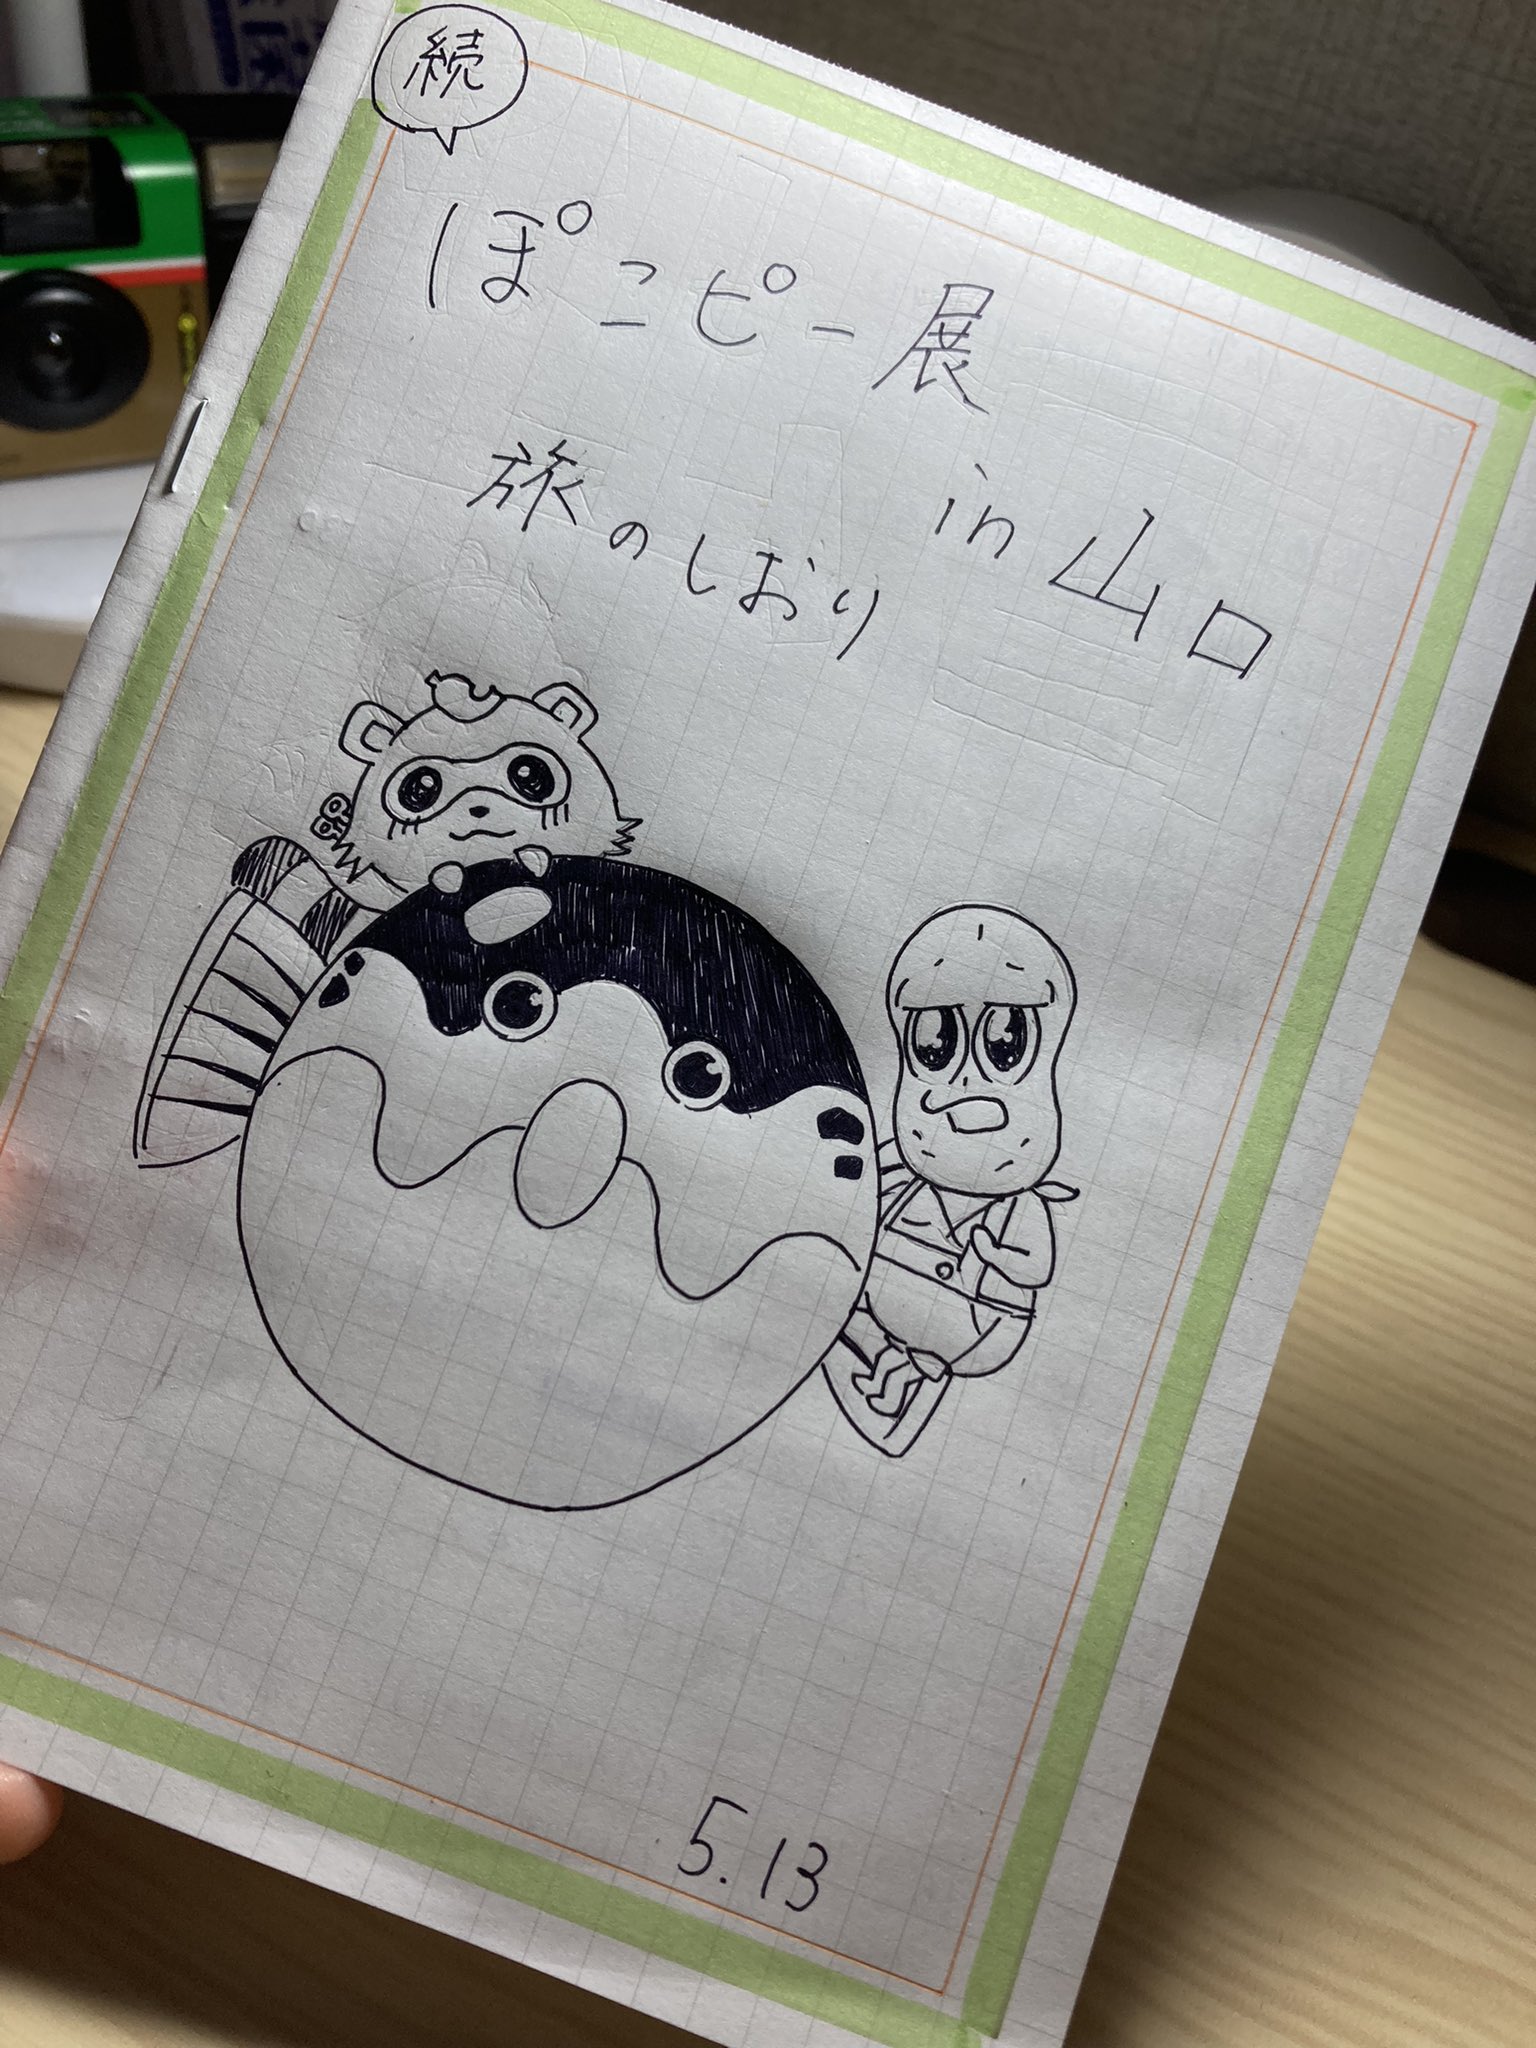 続
ぽこピー展
in 山口
旅のしおり
5.13